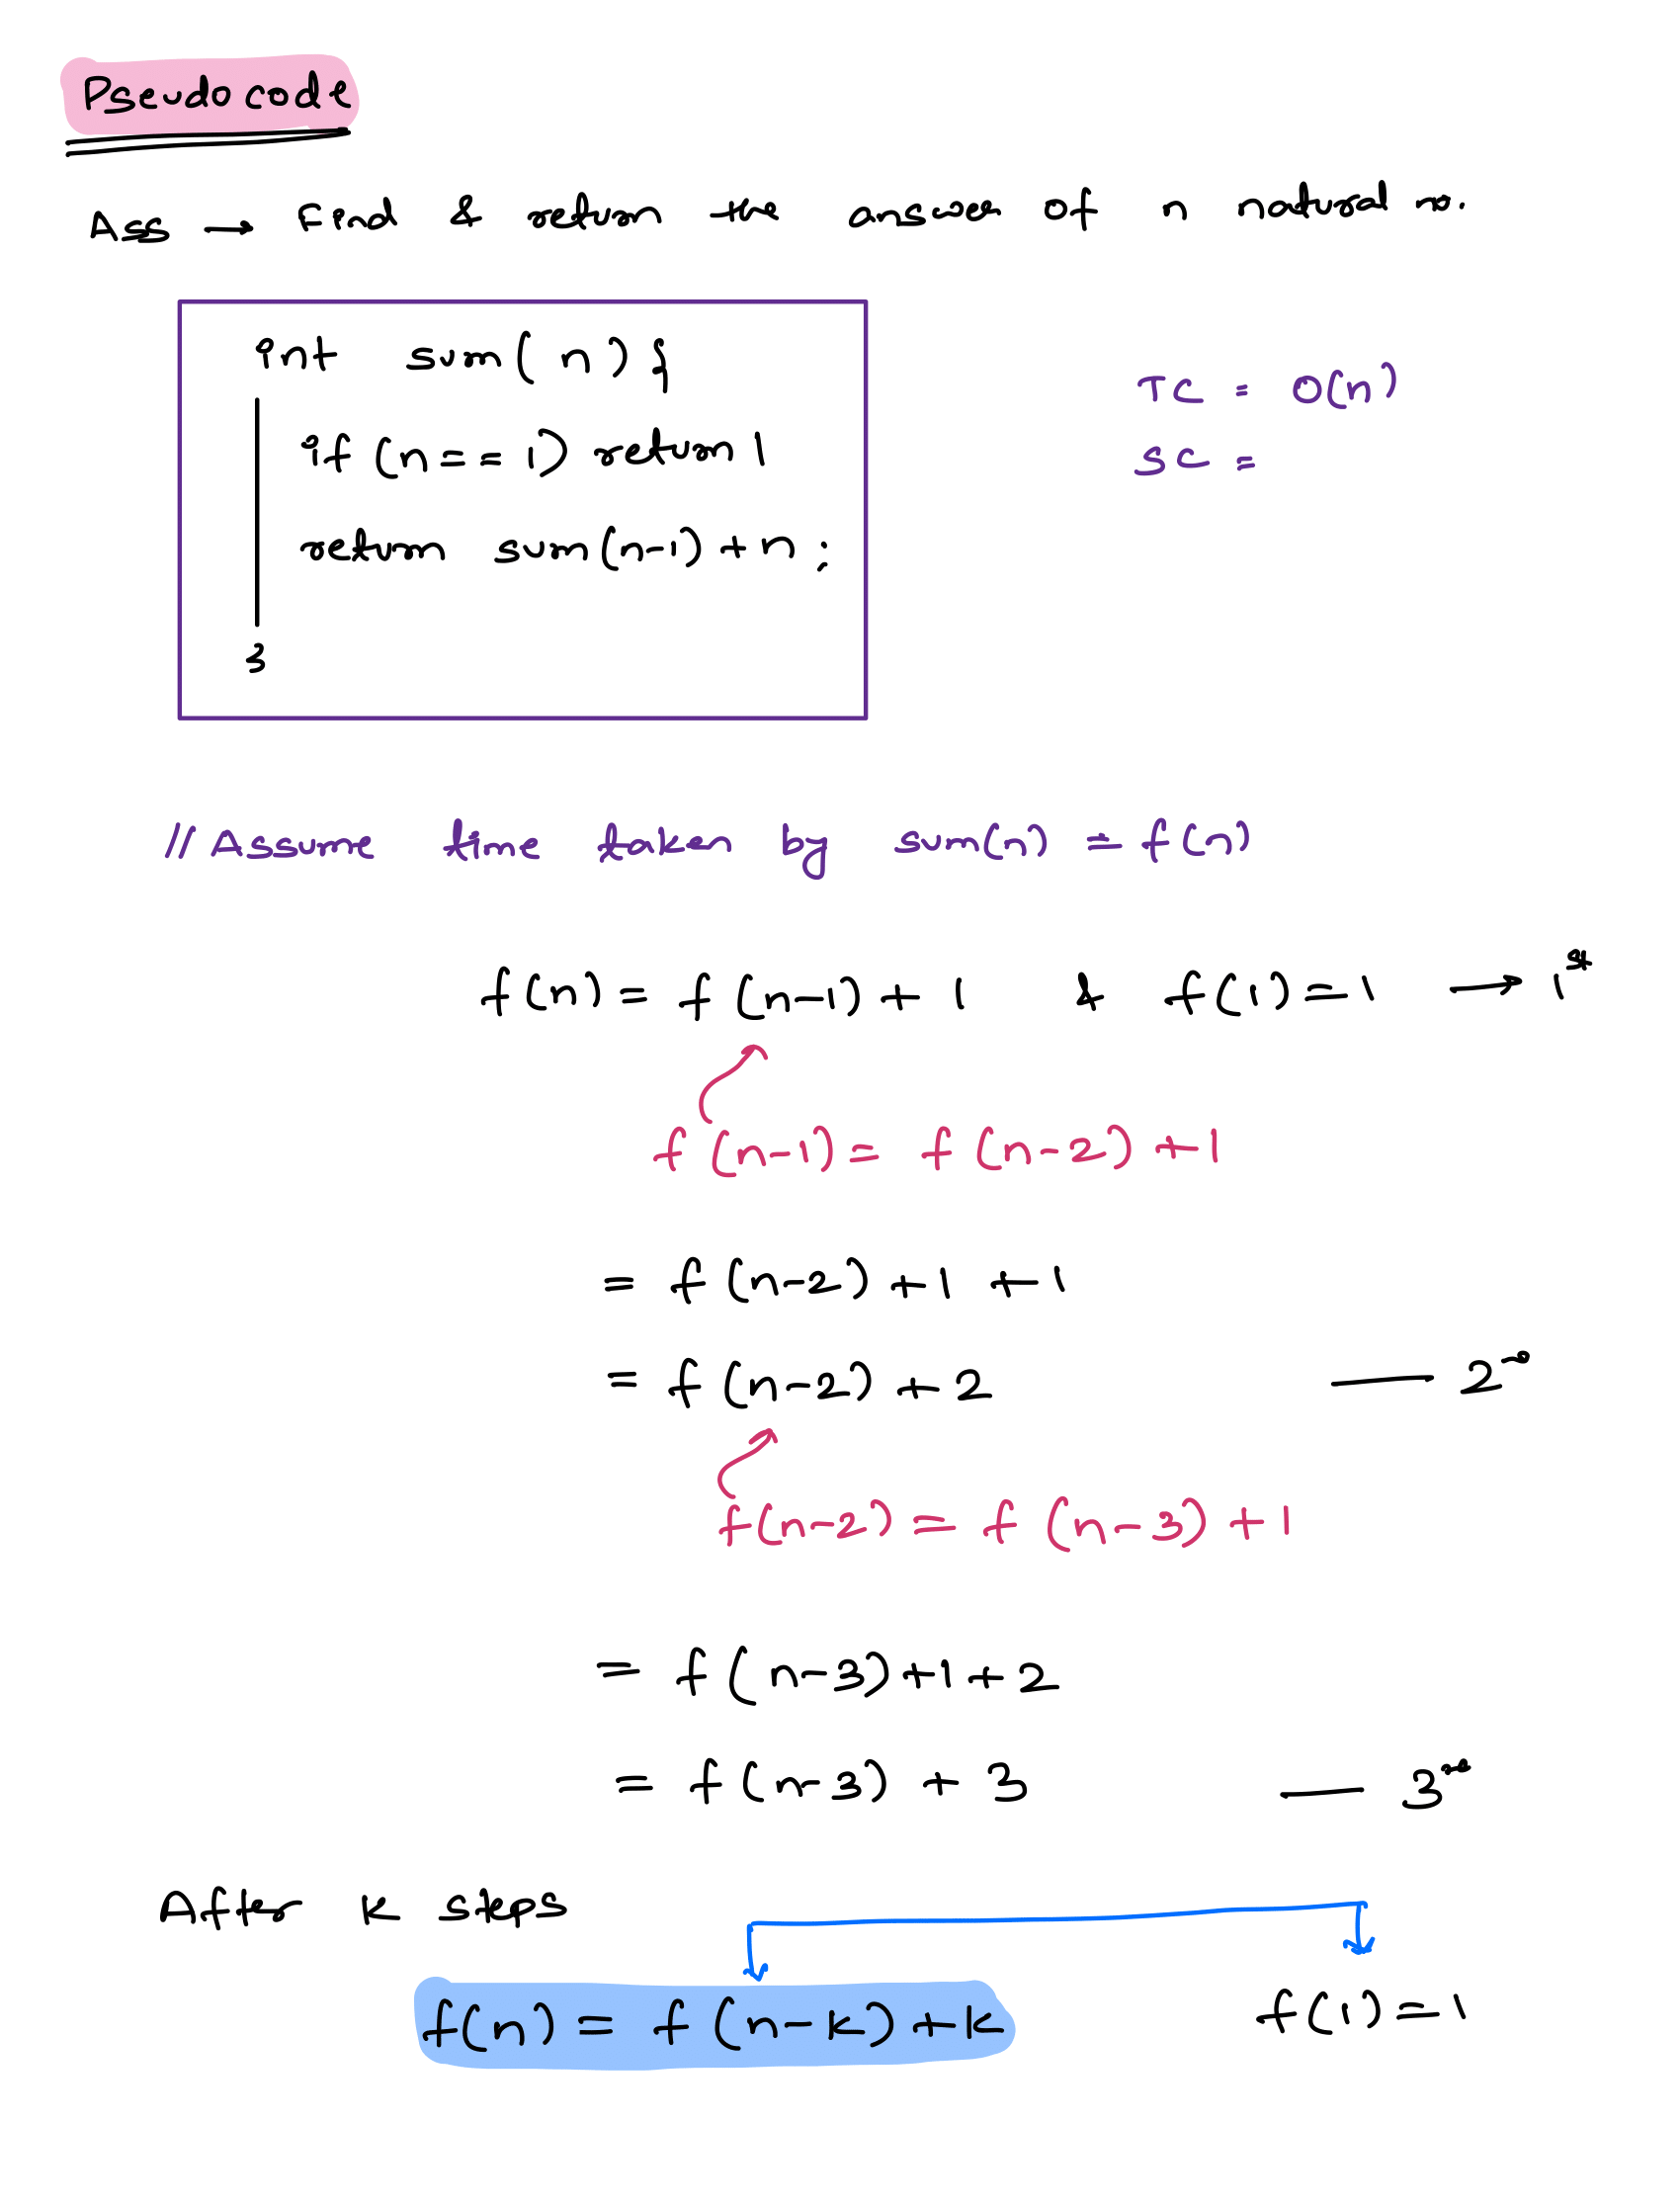 Pseudocode
Ass → Find & return the answer of n natural no.
int sum(n) {
if (n == 1) return 1
return sum(n-1) + n ;
}
TC = O(n)
SC =
// Assume time taken by sum(n) = f(n)
f(n) = f(n-1) + 1 & f(1) = 1 → 1st
f(n-1) = f(n-2) + 1
= f(n-2) + 1 + 1
= f(n-2) + 2 — 2nd
f(n-2) = f(n-3) + 1
= f(n-3) + 1 + 2
= f(n-3) + 3 — 3rd
After k steps
f(n) = f(n-k) + k f(1) = 1